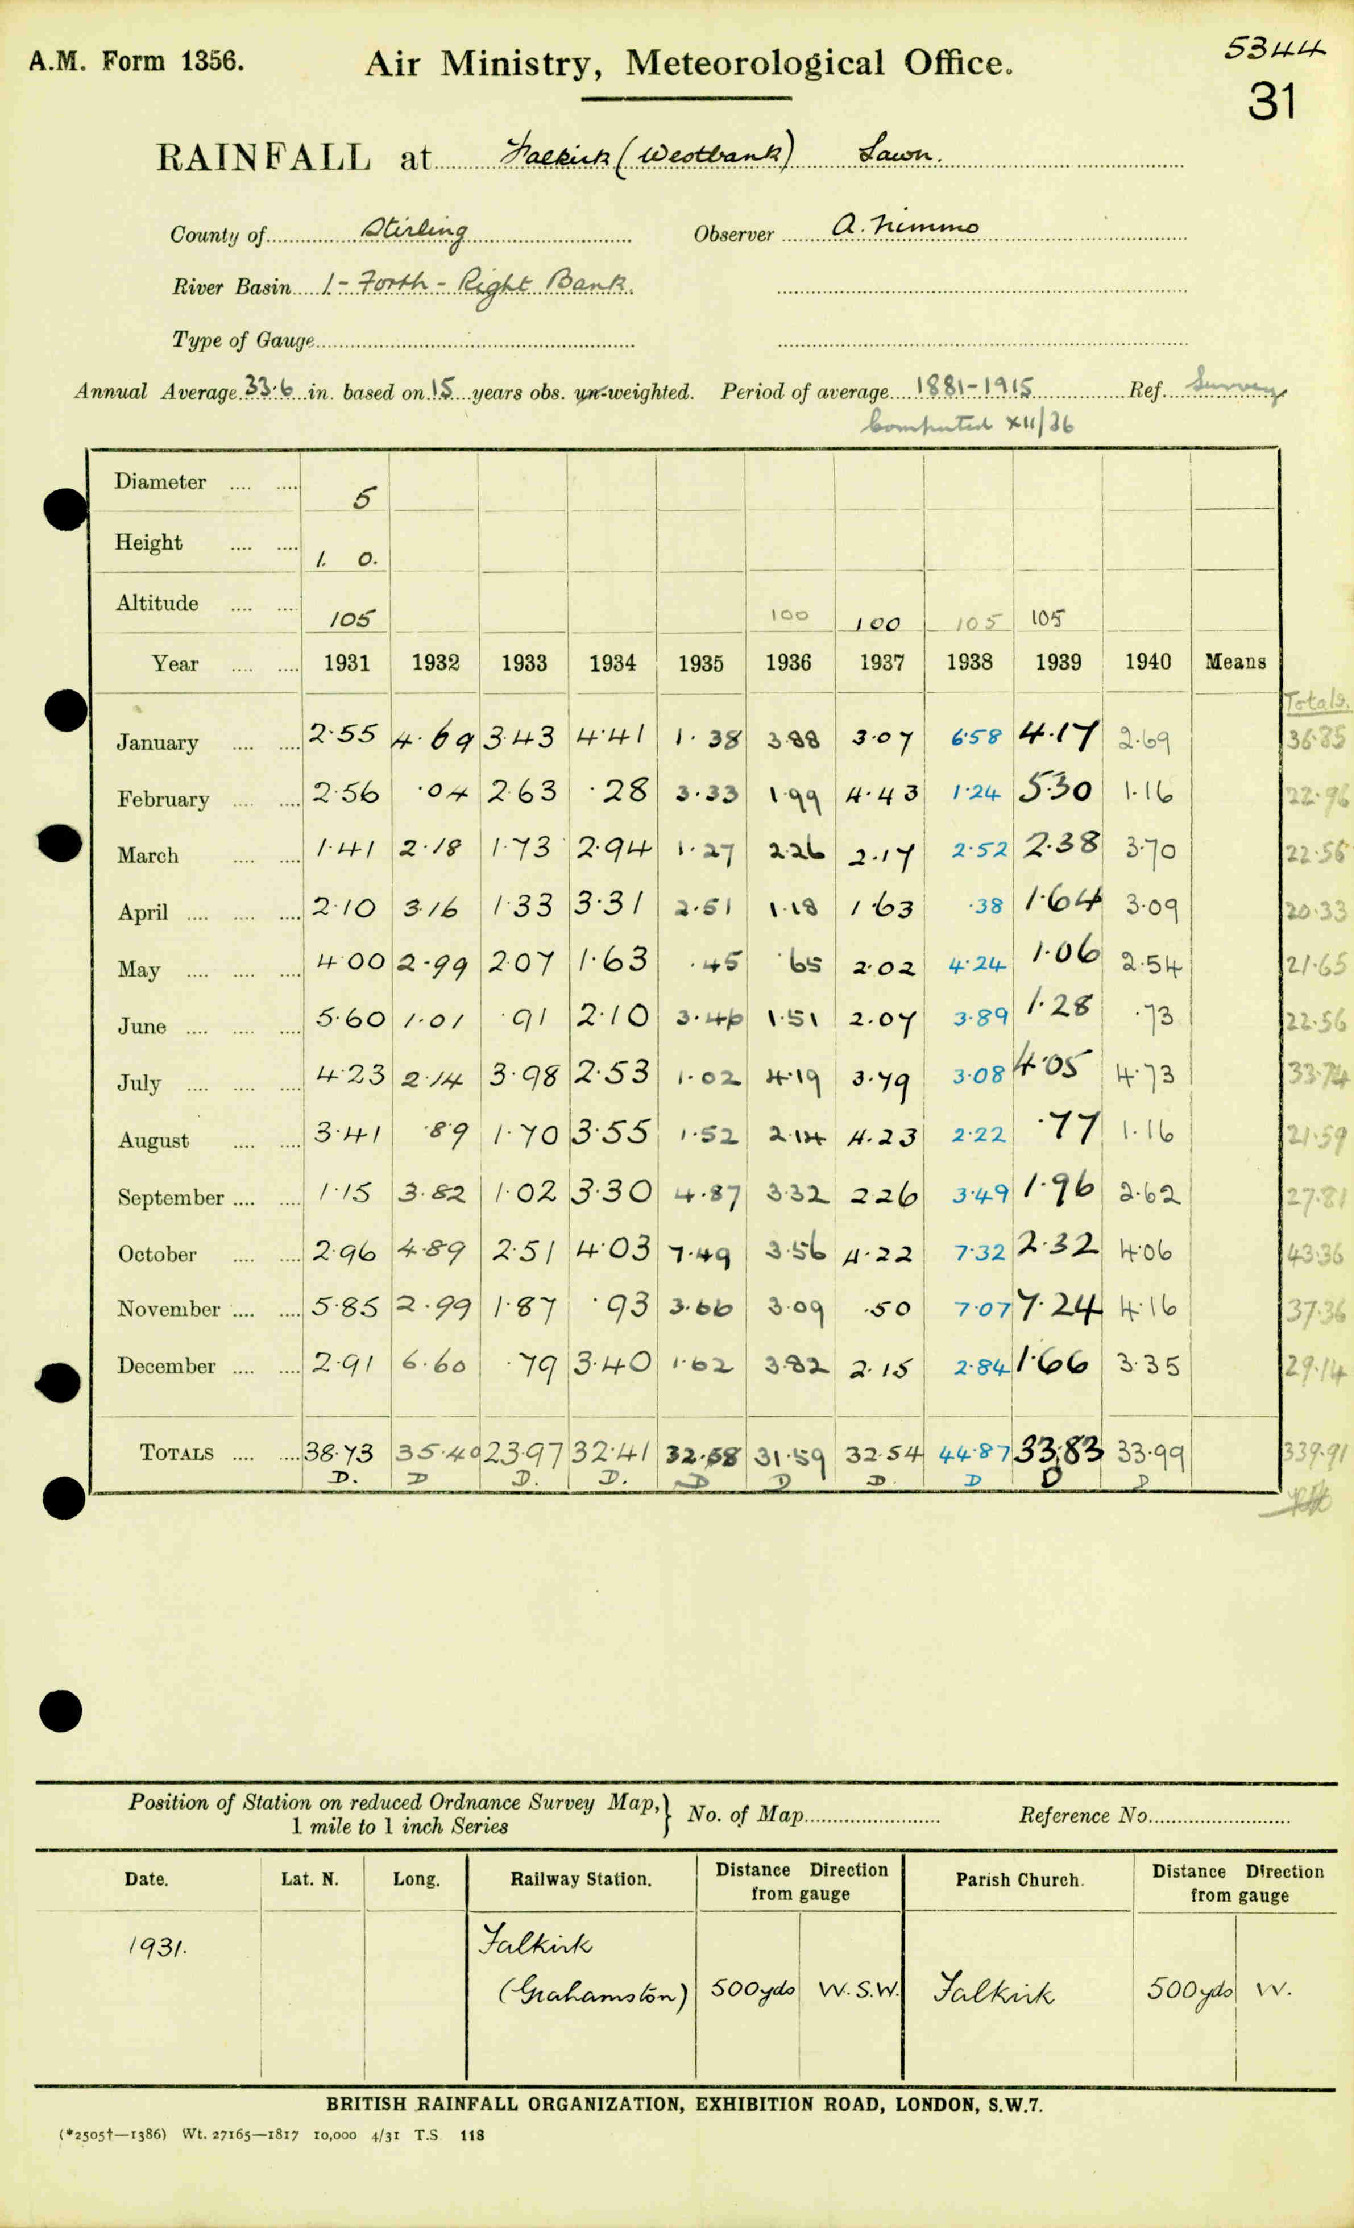 5344
A.M. Form 1356. Air Ministry, Meteorological Office.
31
RAINFALL at Falkirk (Westbank) Lawn.
County of Stirling Observer A. Nimmo
River Basin 1 - Forth - Right Bank.
Type of Gauge
Annual Average 33.6 in. based on 15 years obs. un-weighted. Period of average 1881-1915 Ref. Survey
Computed XII/36
Diameter 5
Height 1. 0.
Altitude 105 100 100 105 105
Year 1931 1932 1933 1934 1935 1936 1937 1938 1939 1940 Means
Totals.
January 2.55 4.69 3.43 4.41 1.38 3.88 3.07 6.58 4.17 2.69 36.85
February 2.56 .04 2.63 .28 3.33 1.99 4.43 1.24 5.30 1.16 22.96
March 1.41 2.18 1.73 2.94 1.27 2.26 2.17 2.52 2.38 3.70 22.56
April 2.10 3.16 1.33 3.31 2.51 1.18 1.63 .38 1.64 3.09 20.33
May 4.00 2.99 2.07 1.63 .45 .65 2.02 4.24 1.06 2.54 21.65
June 5.60 1.01 .91 2.10 3.46 1.51 2.07 3.89 1.28 .73 22.56
July 4.23 2.14 3.98 2.53 1.02 4.19 3.79 3.08 4.05 4.73 33.74
August 3.41 .89 1.70 3.55 1.52 2.14 4.23 2.22 .77 1.16 21.59
September 1.15 3.82 1.02 3.30 4.87 3.32 2.26 3.49 1.96 2.62 27.81
October 2.96 4.89 2.51 4.03 7.49 3.56 4.22 7.32 2.32 4.06 43.36
November 5.85 2.99 1.87 .93 3.66 3.09 .50 7.07 7.24 4.16 37.36
December 2.91 6.60 .79 3.40 1.62 3.82 2.15 2.84 1.66 3.35 29.14
TOTALS 38.73 35.40 23.97 32.41 32.58 31.59 32.54 44.87 33.83 33.99 339.91
D. D D. D. D D D D D D
Position of Station on reduced Ordnance Survey Map, 1 mile to 1 inch Series } No. of Map Reference No.
Date. Lat. N. Long. Railway Station. Distance Direction from gauge Parish Church. Distance Direction from gauge
1931. Falkirk
(Grahamston) 500yds W.S.W. Falkirk 500yds W.
BRITISH RAINFALL ORGANIZATION, EXHIBITION ROAD, LONDON, S.W.7.
(*2505†—1386) Wt. 27165—1817 10,000 4/31 T.S. 118